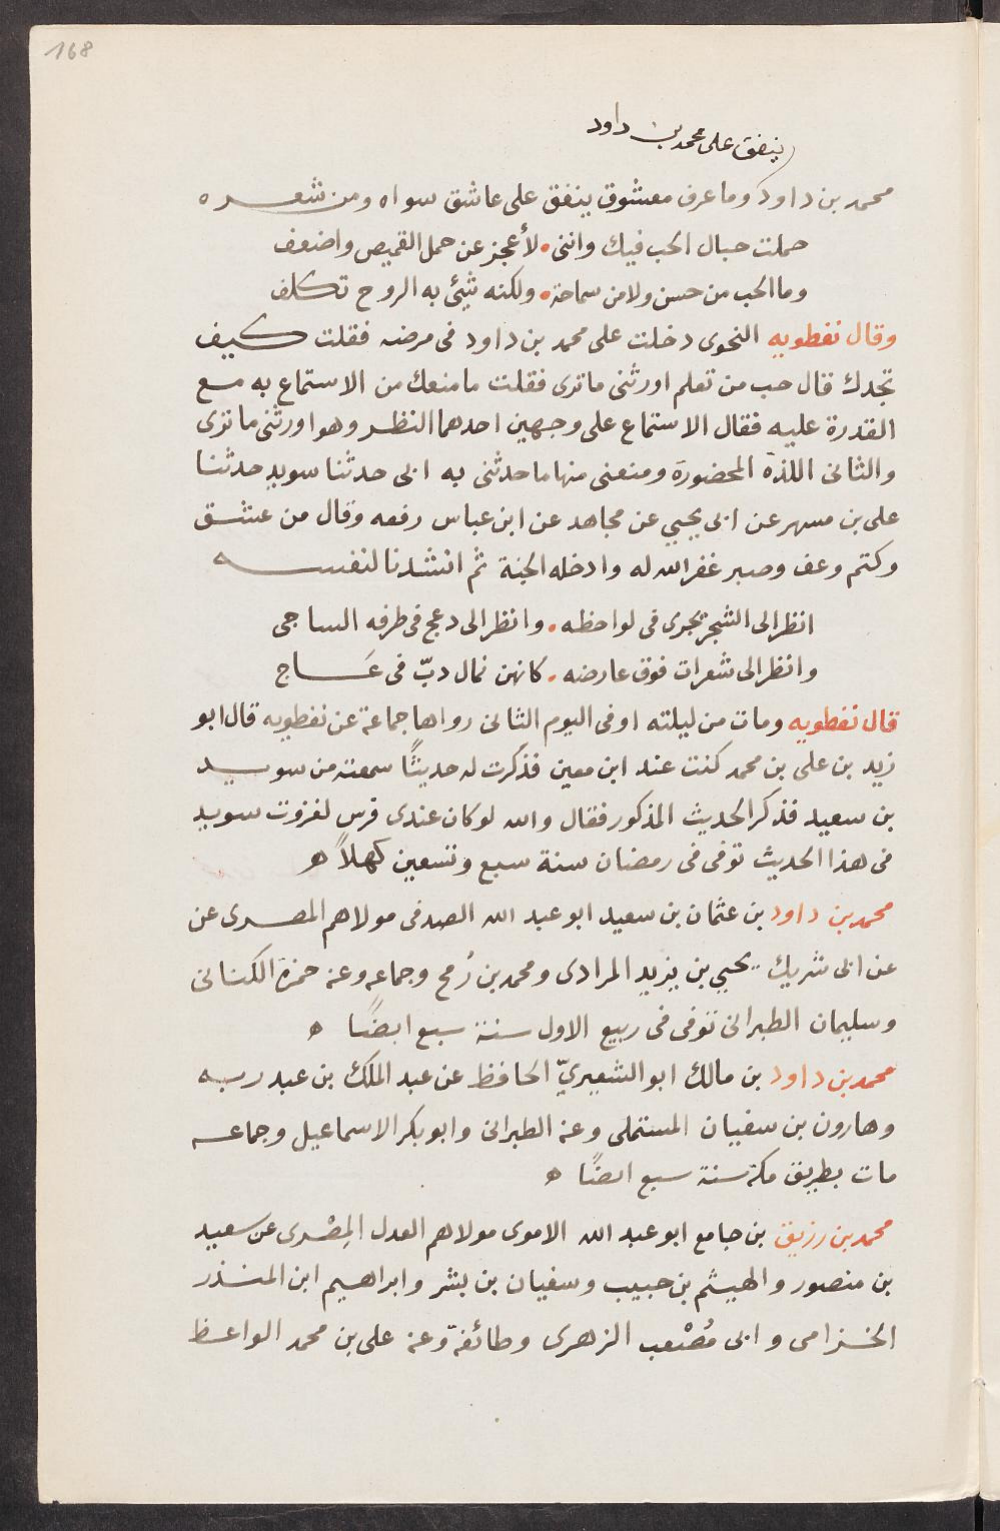 168
ينفق على محمد بن داود
محمد بن داود وما عرف معشوق ينفق على عاشق سواه ومن شعره
حملت حبال الحب فيك وانني . لأعجز عن حمل القميص واضعف
وما الحب من حسن ولا من سماحة . ولكنه شيئ به الروح تكلف
وقال نفطويه النحوى دخلت على محمد بن داود فى مرضه فقلت كيف
تجدك قال حب من تعلم اورثنى ما ترى فقلت ما منعك من الاستماع به مع
القدرة عليه فقال الاستماع على وجهين احدهما النظر وهو اورثنى ما ترى
والثانى اللذة المحضورة ومنعنى منها ما حدثنى به ابى حدثنا سويد حدثنا
على بن مسهر عن ابى يحيي عن مجاهد عن ابن عباس رفعه وقال من عشق
وكتم وعف وصبر غفر الله له وادخله الجنة ثم انشدنا لنفسه
انظر الى الشجر يجرى فى لواحظه . وانظر الى دعج فى طرفه الساجى
وانظر الى شعرات فوق عارضه . كانهن نمال دبّ فى عَاج
قال نفطويه ومات من ليلته اوفى اليوم الثانى رواها جماعة عن نفطويه قال ابو
زيد بن على بن محمد كنت عند ابن معين فذكرت له حديثًا سمعته من سويد
بن سعيد فذكر الحديث المذكور فقال والله لو كان عندى فرس لغزوت سويد
فى هذا الحديث توفى فى رمضان سنة سبع وتسعين كهلاً ه
محمد بن داود بن عثمان بن سعيد ابو عبد الله الصدفى مولاهم المصرى عن
عن ابى شريك يحيي بن يزيد المرادى ومحمد بن رُمح وجماعه وعنه حمزة الكنانى
وسليمان الطبرانى توفى فى ربيع الاول سنة سبع ايضًا ه
محمد بن داود بن مالك ابو الشعيريّ الحافظ عن عبد الملك بن عبد ربه
وهارون بن سفيان المستملى وعنه الطبرانى وابو بكر الاسماعيل وجماعه
مات بطريق مكة سنة سبع ايضًا ه
محمد بن رزيق بن جامع ابو عبد الله الاموى مولاهم العدل المِصْرى عن سعيد
بن منصور والهيثم بن حبيب وسفيان بن بشر وابراهيم ابن المنذر
الخزامى وابى مُصْعب الزهرى وطائفة وعنه على بن محمد الواعظ